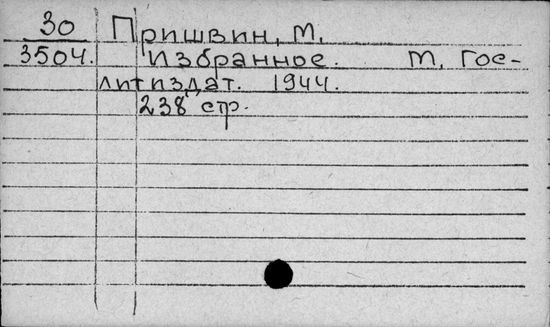 30 Пришвин, М.
3504. Избранное. М. Гос-
литиздат. 1944.
238 стр.